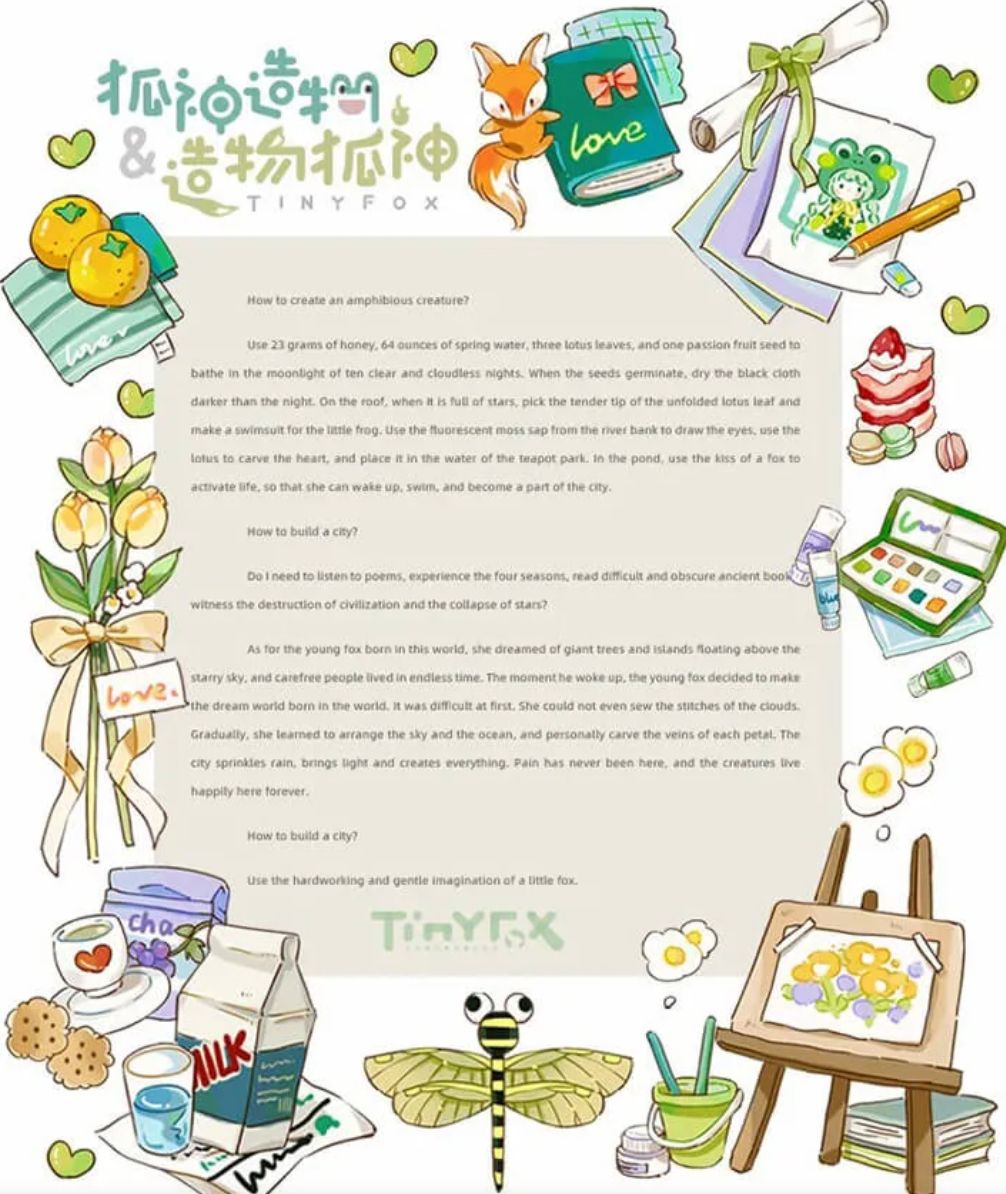 狐神造物
&造物狐神
TINYFOX
love
love
How to create an amphibious creature?
Use 23 grams of honey, 64 ounces of spring water, three lotus leaves, and one passion fruit seed to
bathe in the moonlight of ten clear and cloudless nights. When the seeds germinate, dry the black cloth
darker than the night. On the roof, when it is full of stars, pick the tender tip of the unfolded lotus leaf and
make a swimsuit for the little frog. Use the fluorescent moss sap from the river bank to draw the eyes, use the
lotus to carve the heart, and place it in the water of the teapot park. In the pond, use the kiss of a fox to
activate life, so that she can wake up, swim, and become a part of the city.
How to build a city?
Do I need to listen to poems, experience the four seasons, read difficult and obscure ancient book
witness the destruction of civilization and the collapse of stars?
blue
As for the young fox born in this world, she dreamed of giant trees and islands floating above the
starry sky, and carefree people lived in endless time. The moment he woke up, the young fox decided to make
the dream world born in the world. It was difficult at first. She could not even sew the stitches of the clouds.
Gradually, she learned to arrange the sky and the ocean, and personally carve the veins of each petal. The
city sprinkles rain, brings light and creates everything. Pain has never been here, and the creatures live
happily here forever.
love.
How to build a city?
Use the hardworking and gentle imagination of a little fox.
TINYFOX
cha
MILK